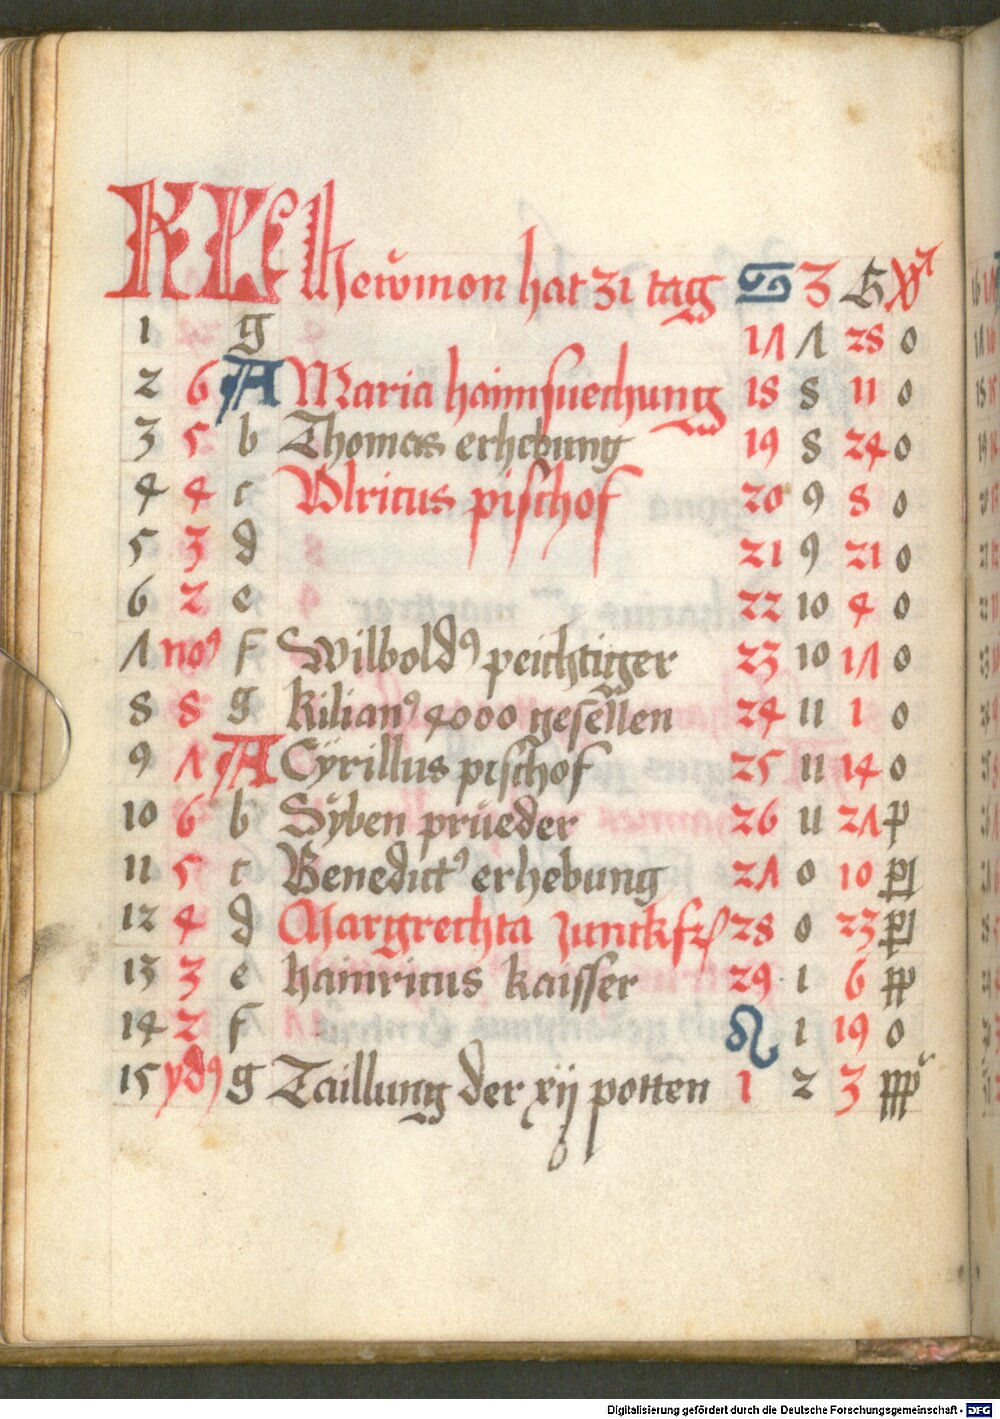 KL Hewmon hat 31 tag ♋ 3 G
1 g 17 7 28 0
2 6 A Maria haimsuechung 18 8 11 0
3 5 b Thomas erhebung 19 8 24 0
4 4 c Vlricus pischof 20 9 8 0
5 3 d 21 9 21 0
6 2 e 22 10 4 0
7 no⁹ f Wilbold⁹ peichtiger 23 10 17 0
8 8 g Kilian⁹ 4000 gesellen 24 11 1 0
9 7 A Cÿrillus pischof 25 11 14 0
10 6 b Sÿben prüeder 26 11 27 p
11 5 c Benedict⁹ erhebung 27 0 10
12 4 d Margrechta Junckfr 28 0 23
13 3 e hainricus kaisser 29 1 6 pp
14 2 f ♌ 1 19 0
15 yd⁹ g Taillung der xij potten 1 2 3
Digitalisierung gefördert durch die Deutsche Forschungsgemeinschaft - DFG